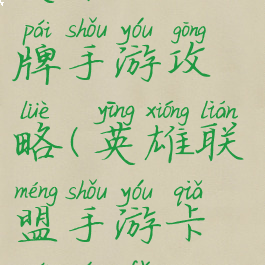 pái shǒu yóu gōng
牌手游攻
lüè yīng xióng lián
略(英雄联
méng shǒu yóu qiǎ
盟手游卡